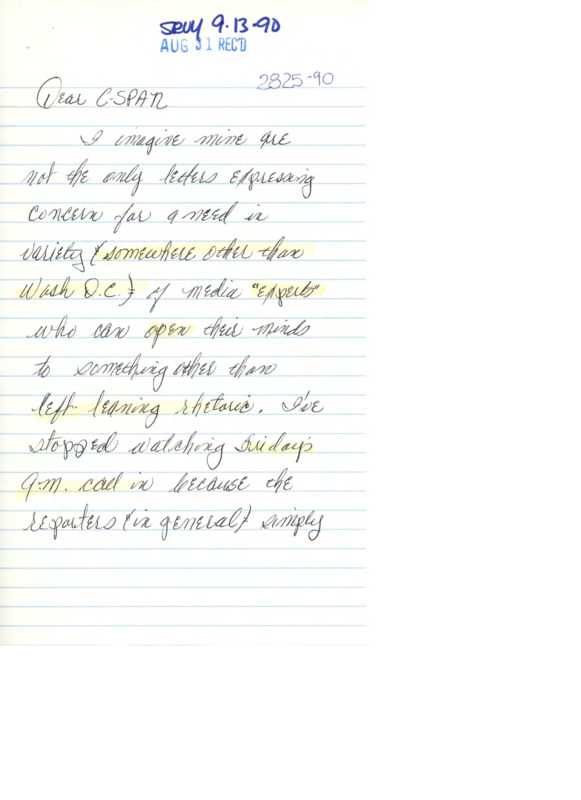 SRVY 9-13-90
AUG 31 REC'D
2825-90
Dear C-SPAN
I imagine mine are
not the only letters expressing
concern for a need in
variety (somewhere other than
Wash D.C.) of media "experts"
who can open their minds
to something other than
left leaning rhetoric. I've
stopped watching Friday's
a.m. call in because the
reporters (in general) simply